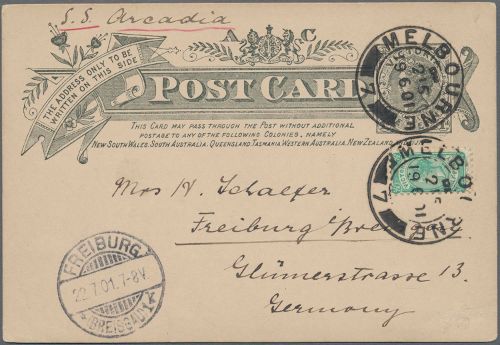 S.S. Arcadia
A C
THE ADDRESS ONLY TO BE
WRITTEN ON THIS SIDE
POST CARD
THIS CARD MAY PASS THROUGH THE POST WITHOUT ADDITIONAL
POSTAGE TO ANY OF THE FOLLOWING COLONIES, NAMELY
NEW SOUTH WALES, SOUTH AUSTRALIA, QUEENSLAND, TASMANIA, WESTERN AUSTRALIA, NEW ZEALAND,
MELBOURNE
19 6 01
7
MELBOURNE
7
Mrs H. Schaefer
Freiburg
Glümerstrasse 13.
Germany
FREIBURG
22.7.01.7-8V.
BREISGAU